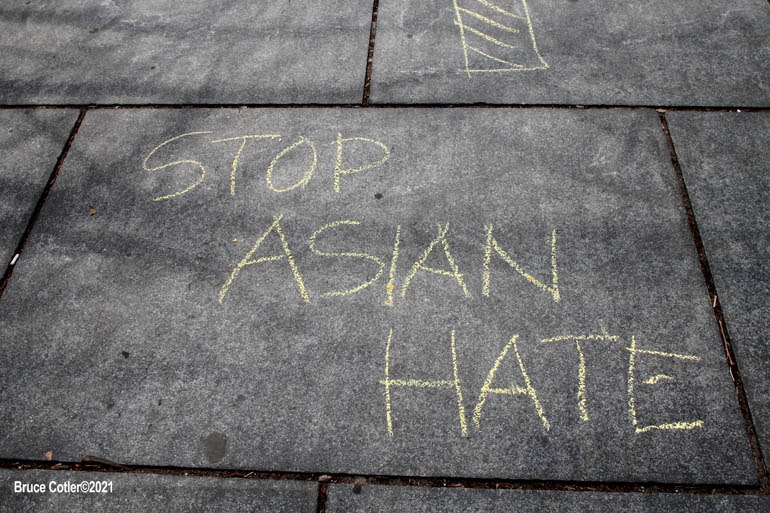 STOP
ASIAN
HATE
Bruce Cotler©2021